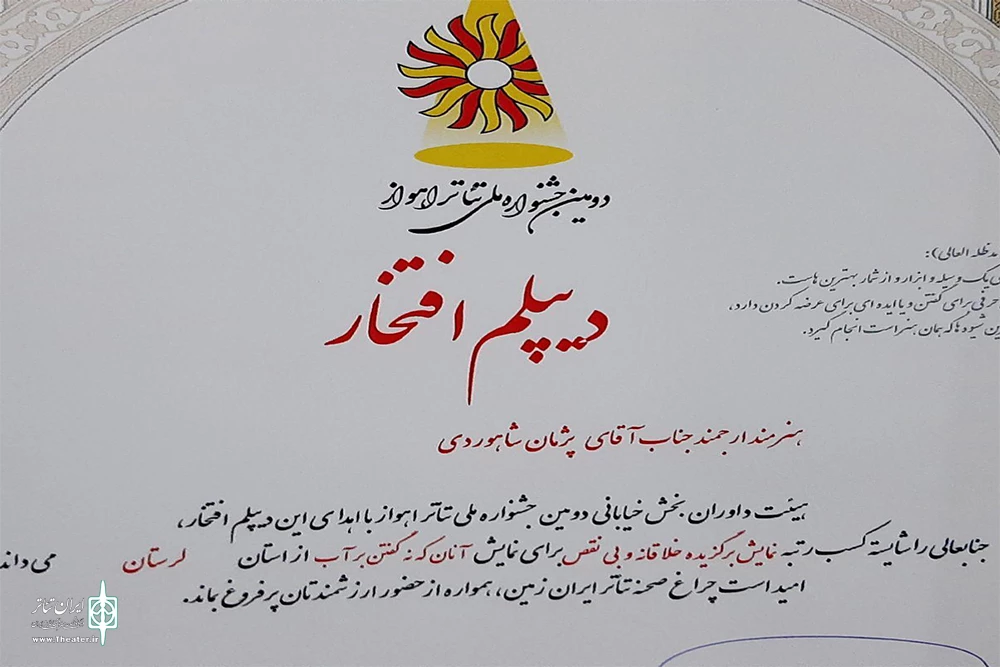 دومین جشنواره ملی تئاتر اهواز
دیپلم افتخار
مدظله العالی):
یک وسیله و ابزار و از شمار بهترین هاست.
حرفی برای گفتن و یا ایده ای برای عرضه کردن دارد،
شیوه ها که همان هنر است انجام گیرد.
هنرمند ارجمند جناب آقای پژمان شاهوردی
هیئت داوران بخش خیابانی دومین جشنواره ملی تئاتر اهواز با اهدای این دیپلم افتخار،
جنابعالی را شایسته کسب رتبه نمایش برگزیده خلاقانه و بی نقص برای نمایش آنان که نه گفتن بر آب از استان لرستان می داند
امید است چراغ صحنه تئاتر ایران زمین، همواره از حضور ارزشمندتان پر فروغ بماند.
ایران تئاتر
www.Theater.ir